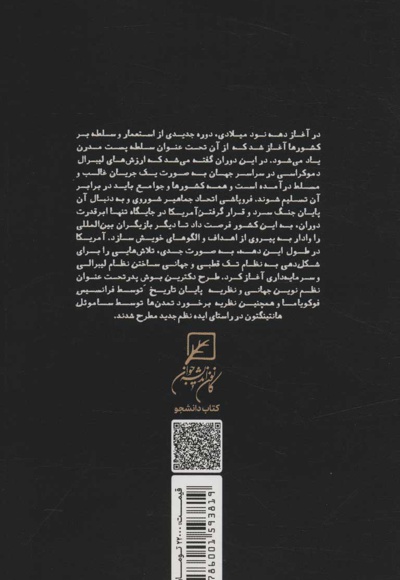 در آغاز دهه نود میلادی، دوره جدیدی از استعمار و سلطه بر
کشورها آغاز شد که از آن تحت عنوان سلطه پست مدرن
یاد می‌شود. در این دوران گفته می‌شد که ارزش‌های لیبرال
دموکراسی در سراسر جهان به صورت یک جریان غالب و
مسلط در آمده است و همه کشورها و جوامع باید در برابر
آن تسلیم شوند. فروپاشی اتحاد جماهیر شوروی و به دنبال آن
پایان جنگ سرد و قرار گرفتن آمریکا در جایگاه تنها ابرقدرت
دوران، به این کشور فرصت داد تا دیگر بازیگران بین‌المللی
را وادار به پیروی از اهداف و الگوهای خویش سازد. آمریکا
در طول این دهه، به صورت جدی، تلاش‌هایی را برای
شکل‌دهی به نظام تک قطبی و جهانی ساختن نظام لیبرالی
و سرمایه‌داری آغاز کرد. طرح دکترین بوش پدر تحت عنوان
نظم نوین جهانی و نظریه "پایان تاریخ" توسط فرانسیس
فوکویاما و همچنین نظریه برخورد تمدن‌ها توسط ساموئل
هانتینگتون در راستای ایده نظم جدید مطرح شدند.
کانون اندیشه جوان
کتاب دانشجو
قیمت: ۲۲۰۰۰ توما
786001593819